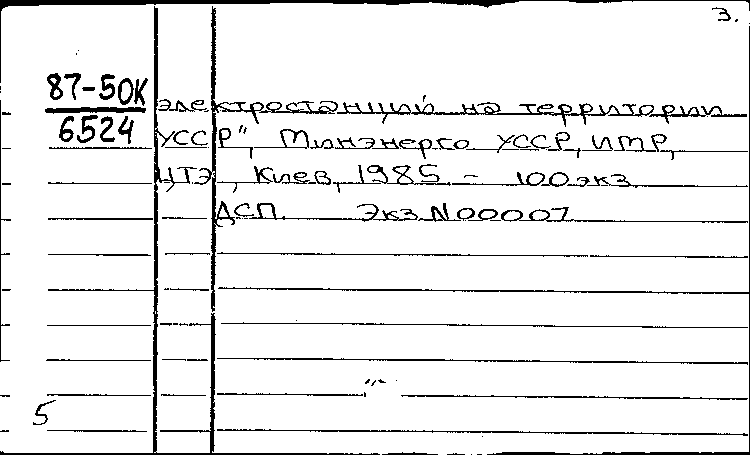 3.
87-5ОК
6524
электростанций на территории
УССР", Минэнерго УССР, ИТР,
ЦТЭ, Киев, 1985 - 100экз
ДСП. Экз.N00007
"
5